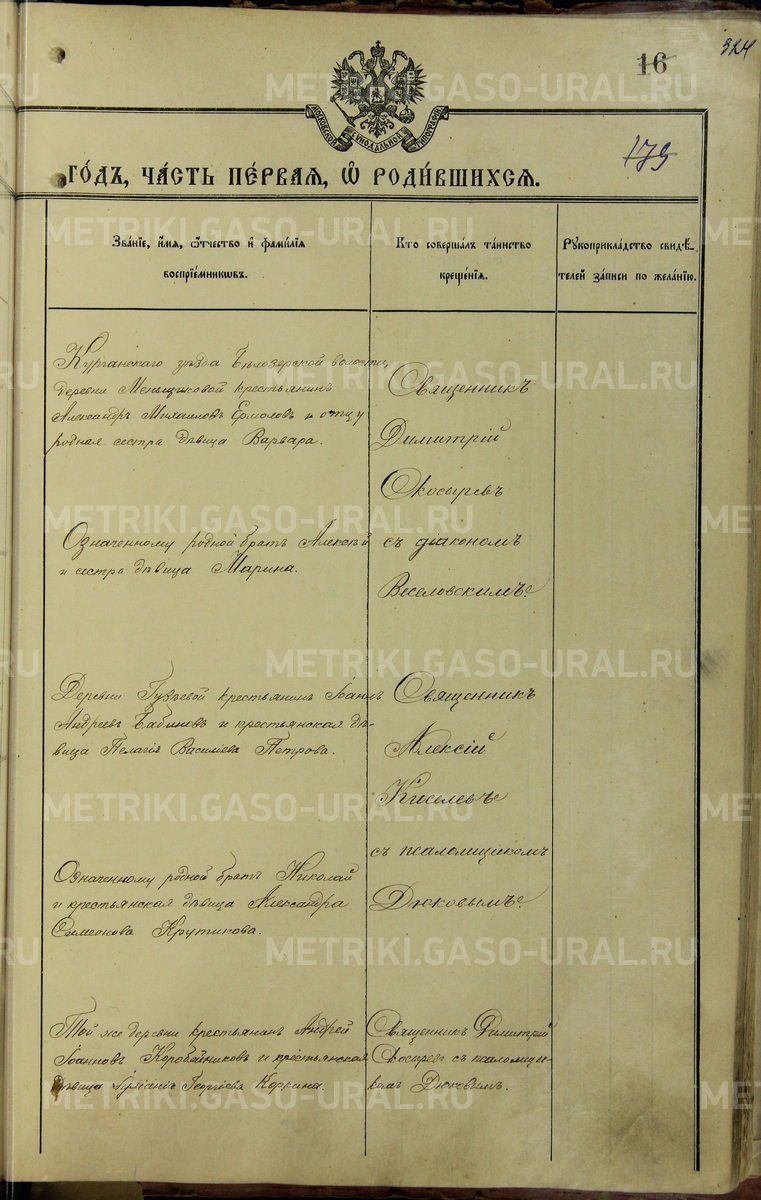 16
324
179
МОСКОВСКОЙ СѴНОДАЛЬНОЙ ТИПОГРАФІИ
ГО́ДЪ, ЧА́СТЬ ПЕ́РВАЯ, Ѽ РОДИ́ВШИХСЯ.
Зва́нїе, и҆́мя, ѻ҆́тчество и҆ фами́лїя
воспрїе́мникѡвъ.
Кто соверша́лъ та́инство
креще́нїя.
Рꙋкоприкла́дство свидѣ́-
телей за́писи по жела́нїю.
Курганскаго уѣзда Бѣлозерской волости,
деревни Меньщиковой крестьянинъ
Александръ Михаиловъ Ермолов и отцу
родная сестра дѣвица Варвара.
Священникъ
Димитрій
Окосыревъ
съ діакономъ
Веселовскимъ.
Означенному родной братъ Алексѣй
и сестра дѣвица Марина.
Деревни Гузѣевой крестьянинъ Іоаннъ
Андреевъ Бабиновъ и крестьянская дѣ-
вица Пелагія Васильева Петрова.
Священникъ
Алексій
Киселевъ
съ псаломщикомъ
Дюковымъ.
Означенному родной братъ Николай
и крестьянская дѣвица Александра
Симеонова Крутикова.
Той же деревни крестьянинъ Андрей
Іоанновъ Коробейниковъ и крестьянская
дѣвица Георгіева Коркина.
Священникъ Димитрій
Окосыревъ съ псаломщи-
комъ Дюковымъ.
METRIKI.GASO-URAL.RU